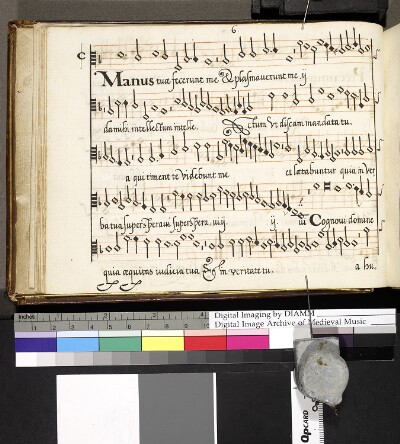 6
C
Manus tuæ fecerunt me & plasmaverunt me ij
da mihi intellectum intelle. & tum Ut discam mandata tu.
a qui timent te videbunt me et lætabuntur quia in ver
ba tua supersperavi superspera. vi ij ij vi Cognovi domine
quia æquitas iudicia tua & in veritate tu. a hu.
inches 1 2 3 4
Digital Imaging by DIAMM
Digital Image Archive of Medieval Music
cm 1 2 3 4 5 6 7 8 9 10
OpCARD